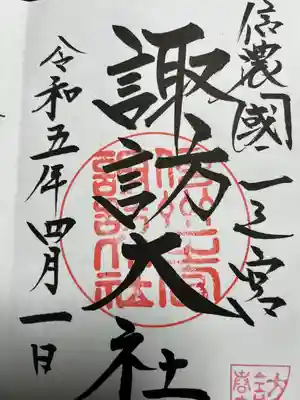 信濃國一之宮
諏訪大社
令和五年四月一日